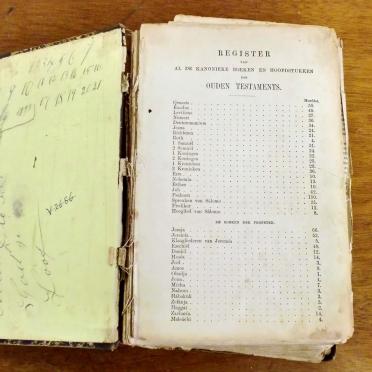 6 7
9 10 11 12 13 14 15 16
17 18 19 20 21
V2666
REGISTER
VAN
AL DE KANONIEKE BOEKEN EN HOOFDSTUKKEN
DES
OUDEN TESTAMENTS.
Hoofdst.
Genesis 50.
Exodus 40.
Leviticus 27.
Numeri 36.
Deuteronomium 34.
Josua 24.
Richteren 21.
Ruth 4.
1 Samuel 31.
2 Samuel 24.
1 Koningen 22.
2 Koningen 25.
1 Kronieken 29.
2 Kronieken 36.
Ezra 10.
Nehemia 13.
Esther 10.
Job 42.
Psalmen 150.
Spreuken van Salomo 31.
Prediker 12.
Hooglied van Salomo 8.
DE BOEKEN DER PROFETEN.
Jesaja 66.
Jeremia 52.
Klaagliederen van Jeremia 5.
Ezechiël 48.
Daniël 12.
Hosea 14.
Joël 3.
Amos 9.
Obadja 1.
Jona 4.
Micha 7.
Nahum 3.
Habakuk 3.
Zefanja 3.
Haggaï 2.
Zacharia 14.
Maleachi 4.